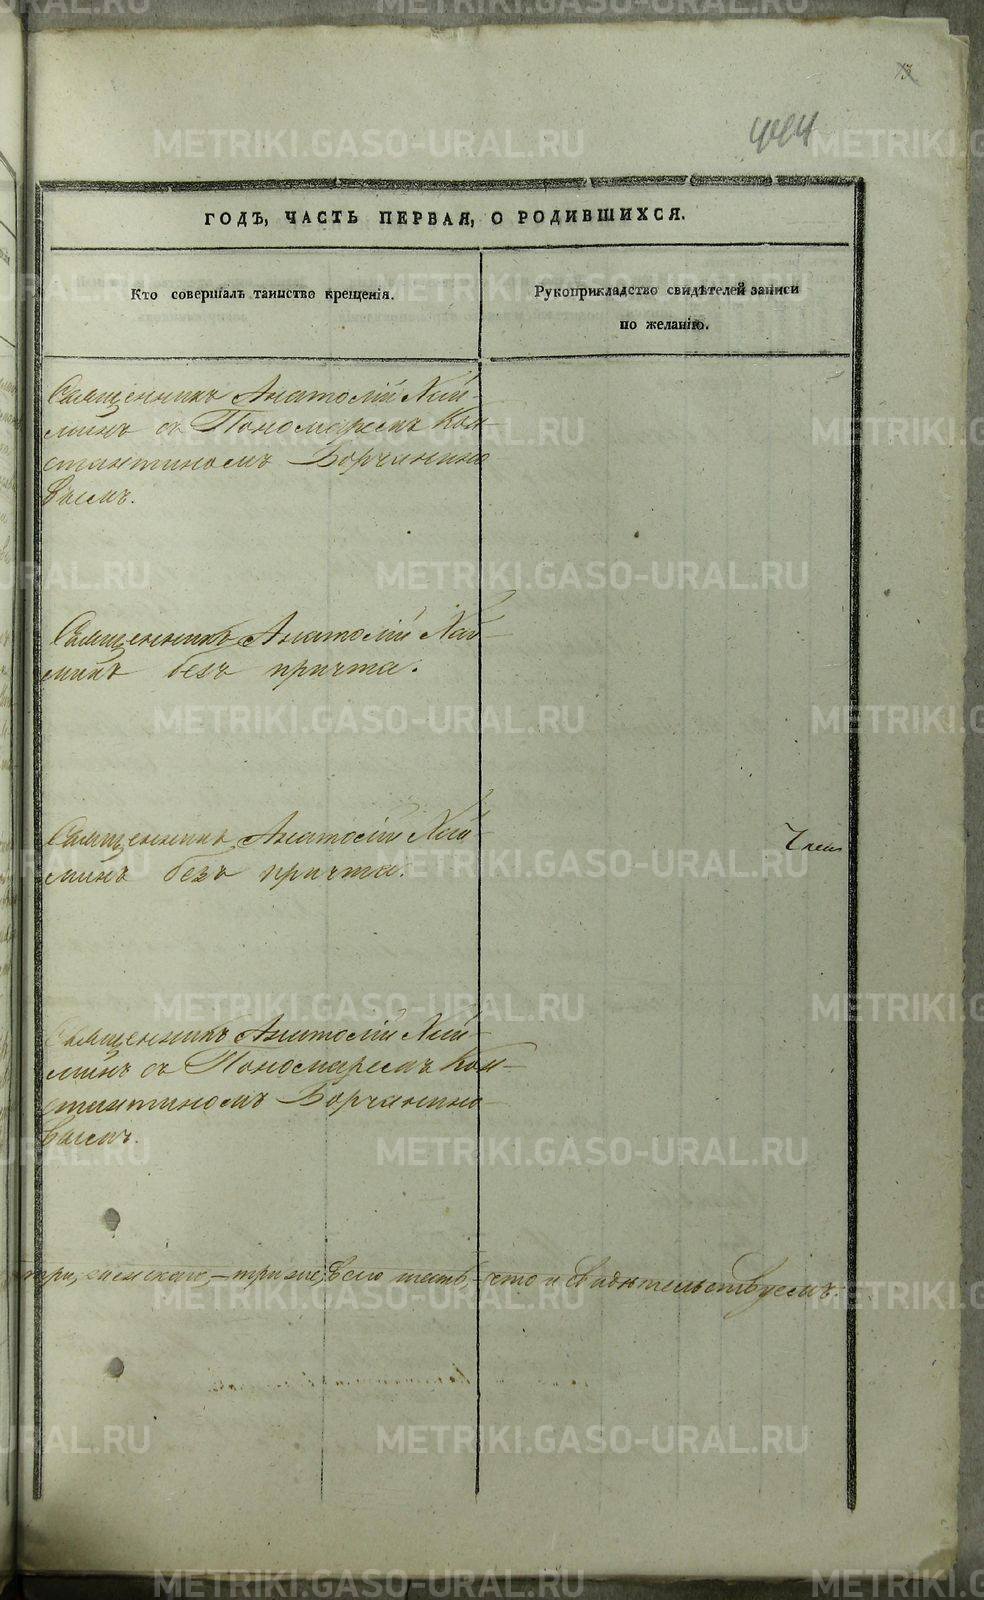 13
ГОДЪ, ЧАСТЬ ПЕРВАЯ, О РОДИВШИХСЯ.
Кто совершалъ таинство крещенія.
Рукоприкладство свидѣтелей записи
по желанію.
Священникъ Анатолій Хай-
минъ съ Пономаремъ Кон-
стантиномъ Борчанино
вымъ.
Священникъ Анатолій Хай-
минъ безъ причта.
Священникъ Анатолій Хай-
минъ безъ причта.
Священникъ Анатолій Хай-
минъ съ Пономаремъ Кон-
стантиномъ Борчанино-
вымъ.
три, женскаго,—три же, всего шесть,—что и свидѣтельствуемъ.
METRIKI.GASO-URAL.RU